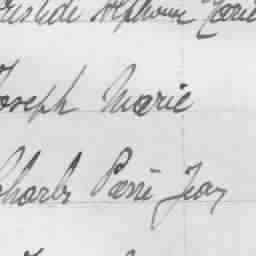 Aristide Alphonse Marie
Joseph Marie
Charles Pierre Jean